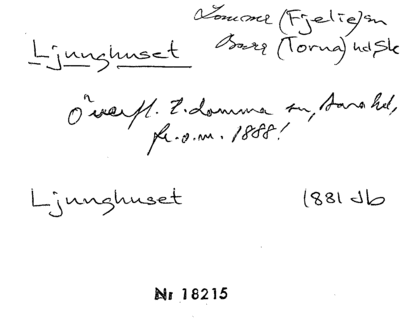 Lomma (Fjelie) sn
Ljunghuset Bara (Torna) hd Sk
Överfl. t. Lomma sn, Bara hd,
fr.o.m. 1888!
Ljunghuset 1881 db
Nr 18215